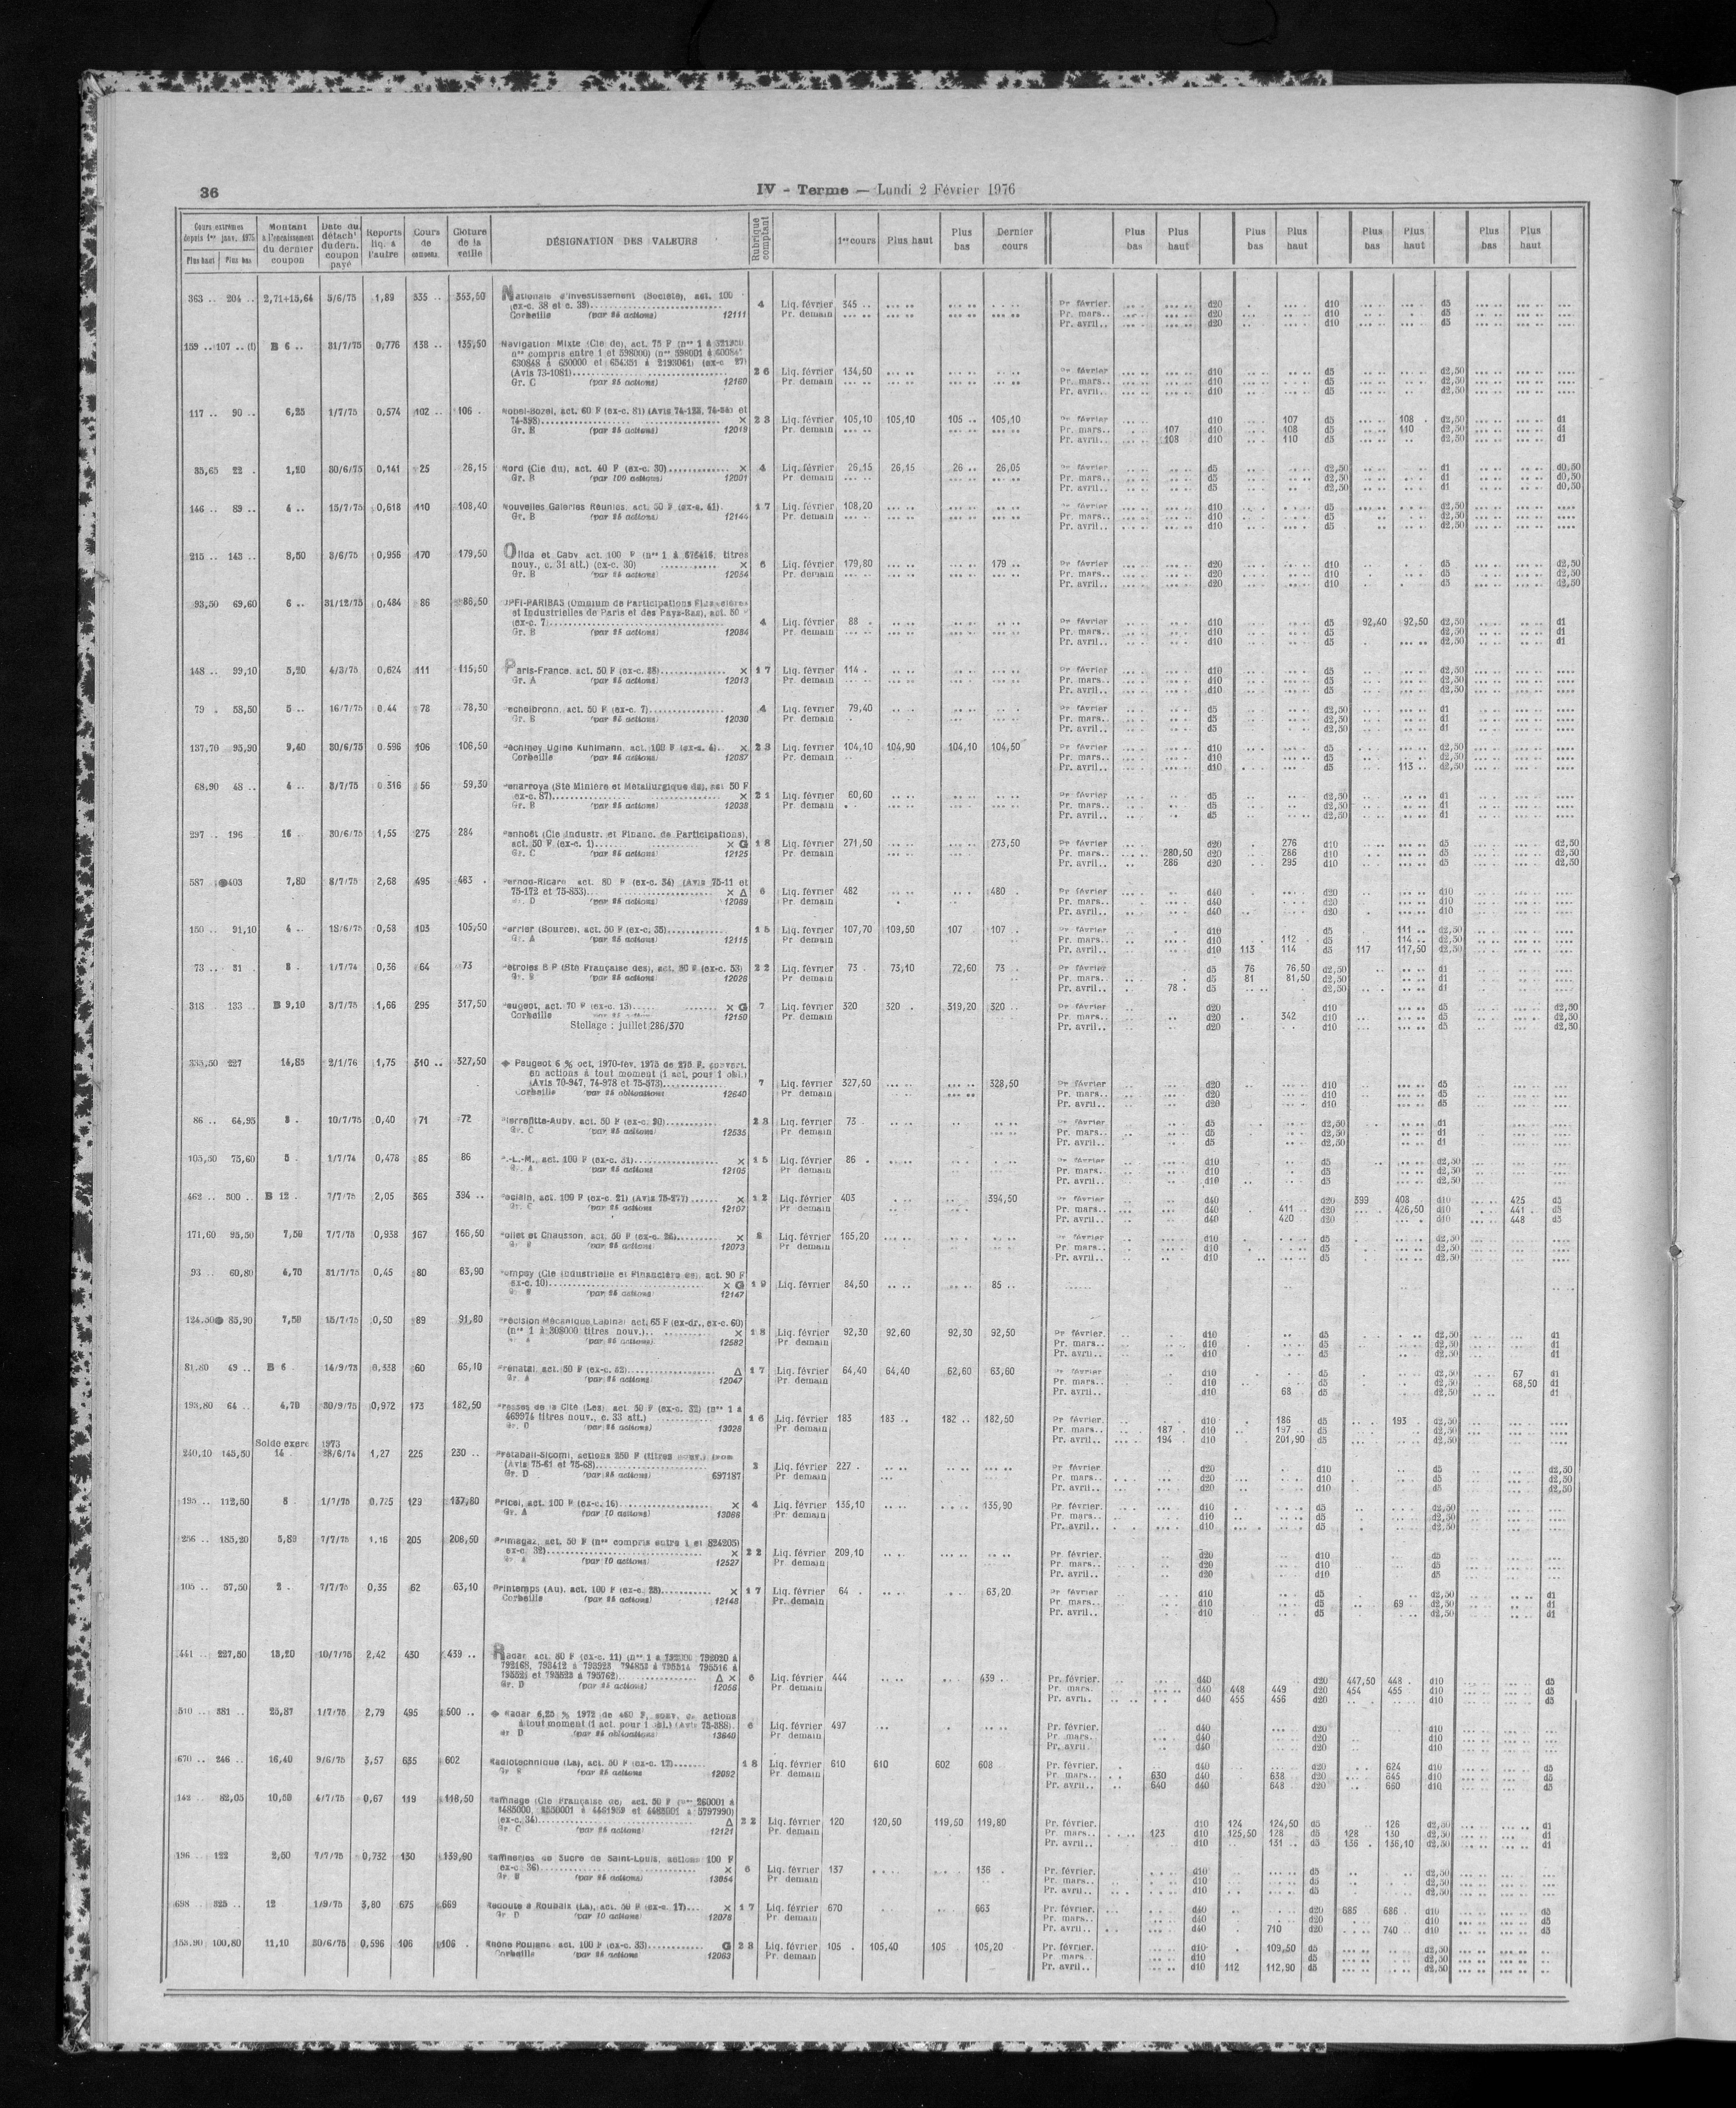 36
IV - Terme — Lundi 2 Février 1976
Cours extrêmes depuis 1er janv. 1975 Plus haut Plus bas
Montant à l'encaissement du dernier coupon
Date du détach' du dern. coupon payé
Reports liq. à l'autre
Cours de compens.
Clôture de la veille
DÉSIGNATION DES VALEURS
Rubrique comptant
1er cours Plus haut Plus bas Dernier cours
Plus bas Plus haut Plus bas Plus haut Plus bas Plus haut Plus bas Plus haut
363 .. 204 .. 2,71+15,64 5/6/75 1,89 335 .. 353,50 Nationale d'Investissement (Société), act. 100
(ex-c. 38 et c. 39) 4 Liq. février 345 .. Pr. février d20 d10 d5
Corbeille (par 25 actions) 12111 Pr. demain Pr. mars.. d20 d10 d5
Pr. avril.. d20 d10 d5
159 .. 107 .. (t) B 6 .. 31/7/75 0,776 138 .. 135,50 Navigation Mixte (Cie de), act. 75 F
630848 à 650000 et 654351 à 2193061) (ex-c. 27)
(Avis 73-1081) 26 Liq. février 134,50 Pr. février d10 d5 d2,50
Gr. C (par 25 actions) 12160 Pr. demain Pr. mars.. d10 d5 d2,50
Pr. avril.. d10 d5 d2,50
117 .. 90 .. 6,25 1/7/75 0,574 102 .. 106 . Nobel-Bozel, act. 60 F (ex-c. 81)
× 23 Liq. février 105,10 105,10 105 .. 105,10 Pr. février d10 107 d5 108 . d2,50 d1
Gr. B (par 25 actions) 12019 Pr. demain Pr. mars.. 107 d10 108 d5 110 d2,50 d1
Pr. avril.. 108 d10 110 d5 d2,50 d1
35,65 22 . 1,20 30/6/75 0,141 25 26,15 Nord (Cie du), act. 40 F (ex-c. 30) × 4 Liq. février 26,15 26,15 26 .. 26,05 Pr. février d5 d2,50 d1 d0,50
Gr. B (par 100 actions) 12001 Pr. demain Pr. mars.. d5 d2,50 d1 d0,50
Pr. avril.. d5 d2,50 d1 d0,50
146 .. 89 .. 4 .. 15/7/75 0,618 110 108,40 Nouvelles Galeries Réunies, act. 50 F (ex-c. 41). 17 Liq. février 108,20 Pr. février d10 d5 d2,50
Gr. B (par 25 actions) 12144 Pr. demain Pr. mars.. d10 d5 d2,50
Pr. avril.. d10 d5 d2,50
215 .. 143 .. 8,50 3/6/75 0,956 170 179,50 Olida et Caby act. 100 F (nos 1 à 676416, titres
nouv., c. 31 att.) (ex-c. 30) × 6 Liq. février 179,80 179 .. Pr. février d20 d10 d5 d2,50
Gr. B (par 25 actions) 12054 Pr. demain Pr. mars.. d20 d10 d5 d2,50
Pr. avril.. d20 d10 d5 d2,50
93,50 69,60 6 .. 31/12/75 0,484 86 86,50 OPFI-PARIBAS (Omnium de Participations Financières
et Industrielles de Paris et des Pays-Bas), act. 50
(ex-c. 7) 4 Liq. février 88 . Pr. février d10 d5 92,40 92,50 d2,50 d1
Gr. B (par 25 actions) 12084 Pr. demain Pr. mars.. d10 d5 d2,50 d1
Pr. avril.. d10 d5 d2,50 d1
148 .. 99,10 5,20 4/3/75 0,624 111 115,50 Paris-France, act. 50 F (ex-c. 38) × 17 Liq. février 114 . Pr. février d10 d5 d2,50
Gr. A (par 25 actions) 12013 Pr. demain Pr. mars.. d10 d5 d2,50
Pr. avril.. d10 d5 d2,50
79 . 58,50 5 .. 16/7/75 0,44 78 78,30 Pechelbronn, act. 50 F (ex-c. 7) 4 Liq. février 79,40 Pr. février d5 d2,50 d1
Gr. B (par 25 actions) 12030 Pr. demain Pr. mars.. d5 d2,50 d1
Pr. avril.. d5 d2,50 d1
137,70 95,90 9,40 30/6/75 0,596 106 106,50 Péchiney Ugine Kuhlmann, act. 100 F (ex-c. 4). × 23 Liq. février 104,10 104,90 104,10 104,50 Pr. février d10 d5 d2,50
Corbeille (par 25 actions) 12087 Pr. demain Pr. mars.. d10 d5 d2,50
Pr. avril.. d10 d5 113 .. d2,50
68,90 48 .. 4 .. 3/7/75 0,316 56 59,30 Penarroya (Sté Minière et Métallurgique de), act. 50 F
(ex-c. 87) × 21 Liq. février 60,60 Pr. février d5 d2,50 d1
Gr. B (par 25 actions) 12038 Pr. demain Pr. mars.. d5 d2,50 d1
Pr. avril.. d5 d2,50 d1
297 .. 196 16 . 30/6/75 1,55 275 284 Penhoët (Cie Industr. et Financ. de Participations),
act. 50 F (ex-c. 1) × G 18 Liq. février 271,50 273,50 Pr. février d20 276 d10 d5 d2,50
Gr. C (par 25 actions) 12125 Pr. demain Pr. mars.. 280,50 d20 286 d10 d5 d2,50
Pr. avril.. 286 d20 295 d10 d5 d2,50
587 403 7,80 8/7/75 2,68 495 483 . Pernod-Ricard act. 80 F (ex-c. 34) (Avis 75-11 et
75-172 et 75-853) × Δ 6 Liq. février 482 480 Pr. février d40 d20 d10
Gr. D (par 25 actions) 12089 Pr. demain Pr. mars.. d40 d20 d10
Pr. avril.. d40 d20 d10
150 .. 91,10 4 .. 18/6/75 0,58 103 105,50 Perrier (Source), act. 50 F (ex-c. 35) 15 Liq. février 107,70 109,50 107 107 . Pr. février d10 d5 111 .. d2,50
Gr. A (par 25 actions) 12115 Pr. demain Pr. mars.. d10 112 . d5 114 .. d2,50
Pr. avril.. d10 113 114 d5 117 117,50 d2,50
73 .. 51 . 3 . 1/7/74 0,36 64 73 Pétroles B P (Sté Française des), act. 50 F (ex-c. 53) 22 Liq. février 73 . 73,10 72,60 73 .. Pr. février d5 76 76,50 d2,50 d1
Gr. B (par 25 actions) 12028 Pr. demain Pr. mars.. d5 81 81,50 d2,50 d1
Pr. avril.. 78 . d5 d2,50 d1
318 133 .. B 9,10 3/7/75 1,66 295 317,50 Peugeot, act. 70 F (ex-c. 13) × G 7 Liq. février 320 320 . 319,20 320 .. Pr. février d20 d10 d5 d2,50
Corbeille 12150 Pr. demain Pr. mars.. d20 342 d10 d5 d2,50
Stellage : juillet 286/370 Pr. avril.. d20 d10 d5 d2,50
335,50 227 14,85 2/1/76 1,75 310 .. 327,50 ◆ Peugeot 6 % oct. 1970-fév. 1975 de 275 F, convert.
en actions à tout moment (1 act. pour 1 obl.)
(Avis 70-947, 74-978 et 75-573) 7 Liq. février 327,50 328,50 Pr. février d20 d10 d5
Corbeille (par 25 obligations) 12640 Pr. demain Pr. mars.. d20 d10 d5
Pr. avril.. d20 d10 d5
86 .. 64,95 3 . 10/7/75 0,40 71 72 Pierrefitte-Auby, act. 50 F (ex-c. 20) 23 Liq. février 73 . Pr. février d5 d2,50 d1
Gr. C (par 25 actions) 12535 Pr. demain Pr. mars.. d5 d2,50 d1
Pr. avril.. d5 d2,50 d1
105,50 75,60 5 . 1/7/74 0,478 85 86 P.-L.-M., act. 100 F (ex-c. 51) × 15 Liq. février 86 . Pr. février d10 d5 d2,50
Gr. A (par 25 actions) 12105 Pr. demain Pr. mars.. d10 d5 d2,50
Pr. avril.. d10 d5 d2,50
462 .. 300 .. B 12 . 7/7/75 2,05 365 394 .. Poclain, act. 100 F (ex-c. 21) (Avis 75-277) × 12 Liq. février 403 394,50 Pr. février d40 d20 399 408 . d10 425 d5
Gr. C (par 25 actions) 12107 Pr. demain Pr. mars.. d40 411 .. d20 426,50 d10 441 . d5
Pr. avril.. d40 420 d20 d10 448 d5
171,60 95,50 7,50 7/7/75 0,938 167 166,50 Poliet et Chausson, act. 50 F (ex-c. 26) × 8 Liq. février 165,20 Pr. février d10 d5 d2,50
(par 25 actions) 12073 Pr. demain Pr. mars.. d10 d5 d2,50
Pr. avril.. d10 d5 d2,50
93 .. 60,80 4,70 31/7/75 0,45 80 83,90 Pompey (Cie Industrielle et Financière de), act. 90 F
ex-c. 10) × G 19 Liq. février 84,50 85 ..
(par 25 actions) 12147
124,50 85,90 7,50 15/7/75 0,50 89 91,80 Précision Mécanique Labinal act. 65 F (ex-dr., ex-c. 60)
(nos 1 à 308000 titres nouv.) × 18 Liq. février 92,30 92,60 92,30 92,50 Pr. février. d10 d5 d2,50 d1
(par 25 actions) 12582 Pr. demain Pr. mars.. d10 d5 d2,50 d1
Pr. avril.. d10 d5 d2,50 d1
81,80 49 .. B 6 . 14/9/75 0,338 60 65,10 Prénatal, act. 50 F (ex-c. 52) Δ 17 Liq. février 64,40 64,40 62,60 63,60 Pr. février d10 d5 d2,50 67 d1
Gr. A (par 25 actions) 12047 Pr. demain Pr. mars.. d10 d5 d2,50 68,50 d1
Pr. avril.. d10 68 d5 d2,50 d1
193,80 64 .. 4,70 30/9/75 0,972 173 182,50 Presses de la Cité (Les) act. 50 F (ex-c. 32) (nos 1 à
469974 titres nouv., c. 33 att.) 16 Liq. février 183 183 .. 182 .. 182,50 Pr. février. d10 186 d5 193 . d2,50
Gr. D (par 25 actions) 13028 Pr. demain Pr. mars.. 187 . d10 197 .. d5 d2,50
Pr. avril.. 194 . d10 201,90 d5 d2,50
Solde exerc 1973
240,10 145,50 14 . 28/6/74 1,27 225 230 .. Prétabail-Sicomi, actions 250 F (titres nouv.)
(Avis 75-61 et 75-68) 3 Liq. février 227 . Pr. février d20 d10 d5 d2,50
Gr. D (par 25 actions) 697187 Pr. demain Pr. mars.. d20 d10 d5 d2,50
Pr. avril.. d20 d10 d5 d2,50
195 .. 112,50 5 . 1/7/75 0,725 129 137,80 Pricel, act. 100 F (ex-c. 16) × 4 Liq. février 135,10 135,90 Pr. février. d10 d5 d2,50
Gr. A (par 10 actions) 13086 Pr. demain Pr. mars.. d10 d5 d2,50
Pr. avril.. d10 d5 d2,50
256 .. 185,20 5,89 7/7/75 1,16 205 208,50 Primagaz, act. 50 F (nos compris entre 1 et 824205)
ex-c. 32) × 22 Liq. février 209,10 Pr. février. d20 d10 d5
(par 10 actions) 12527 Pr. demain Pr. mars.. d20 d10 d5
Pr. avril.. d20 d10 d5
105 .. 57,50 2 . 7/7/75 0,35 62 63,10 Printemps (Au), act. 100 F (ex-c. 28) × 17 Liq. février 64 . 63,20 Pr. février d10 d5 d2,50 d1
Corbeille (par 25 actions) 12148 Pr. demain Pr. mars.. d10 d5 69 d2,50 d1
Pr. avril.. d10 d5 d2,50 d1
441 .. 227,50 13,20 10/7/75 2,42 430 439 .. Radar, act. 50 F (ex-c. 11)
Δ × 6 Liq. février 444 439 . Pr. février. d40 d20 447,50 448 . d10 d5
Gr. D (par 25 actions) 12056 Pr. demain Pr. mars. d40 448 449 d20 454 455 d10 d5
Pr. avril. d40 455 456 d20 d10 d5
510 .. 381 .. 25,87 1/7/75 2,79 495 500 .. ◆ Radar 6,25 % 1972 de 460 F, conv. en actions
à tout moment (1 act. pour 1 obl.) (Avis 75-388). 6 Liq. février 497 Pr. février. d40 d20 d10
Gr. D (par 25 obligations) 13640 Pr. demain Pr. mars. d40 d20 d10
Pr. avril. d40 d20 d10
670 .. 246 .. 16,40 9/6/75 3,57 635 602 Radiotechnique (La), act. 50 F (ex-c. 17) 18 Liq. février 610 610 602 608 Pr. février. d40 d20 624 d10 d5
(par 25 actions) 12082 Pr. demain Pr. mars.. 630 d40 638 d20 645 d10 d5
Pr. avril.. 640 d40 648 d20 660 d10 d5
142 .. 82,05 10,50 4/7/75 0,67 119 118,50 Raffinage (Cie Française de) act. 50 F
(ex-c. 34) Δ 22 Liq. février 120 120,50 119,50 119,80 Pr. février. d10 124 124,50 d5 126 d2,50 d1
Gr. C (par 25 actions) 12121 Pr. demain Pr. mars.. 123 d10 125,50 128 .. d5 128 130 d2,50 d1
Pr. avril.. d10 131 .. d5 136 . 136,10 d2,50 d1
196 .. 122 2,50 7/7/75 0,732 130 139,90 Raffineries de Sucre de Saint-Louis, actions 100 F
ex-c. 36) × 6 Liq. février 137 136 . Pr. février. d10 d5 d2,50
Gr. B (par 25 actions) 13054 Pr. demain Pr. mars.. d10 d5 d2,50
Pr. avril.. d10 d5 d2,50
698 .. 325 .. 12 1/9/75 3,80 675 669 Redoute à Roubaix (La), act. 50 F (ex-c. 17) × 17 Liq. février 670 663 Pr. février. d40 d20 685 686 . d10 d5
Gr. D (par 10 actions) 12078 Pr. demain Pr. mars.. d40 d20 d10 d5
Pr. avril.. d40 710 d20 740 d10 d5
153,90 100,80 11,10 30/6/75 0,596 106 106 . Rhône Poulenc act. 100 F (ex-c. 33) G 23 Liq. février 105 . 105,40 105 105,20 Pr. février. d10 109,50 d5 d2,50
Corbeille (par 25 actions) 12063 Pr. demain Pr. mars. d10 d5 d2,50
Pr. avril.. d10 112 112,90 d5 d2,50